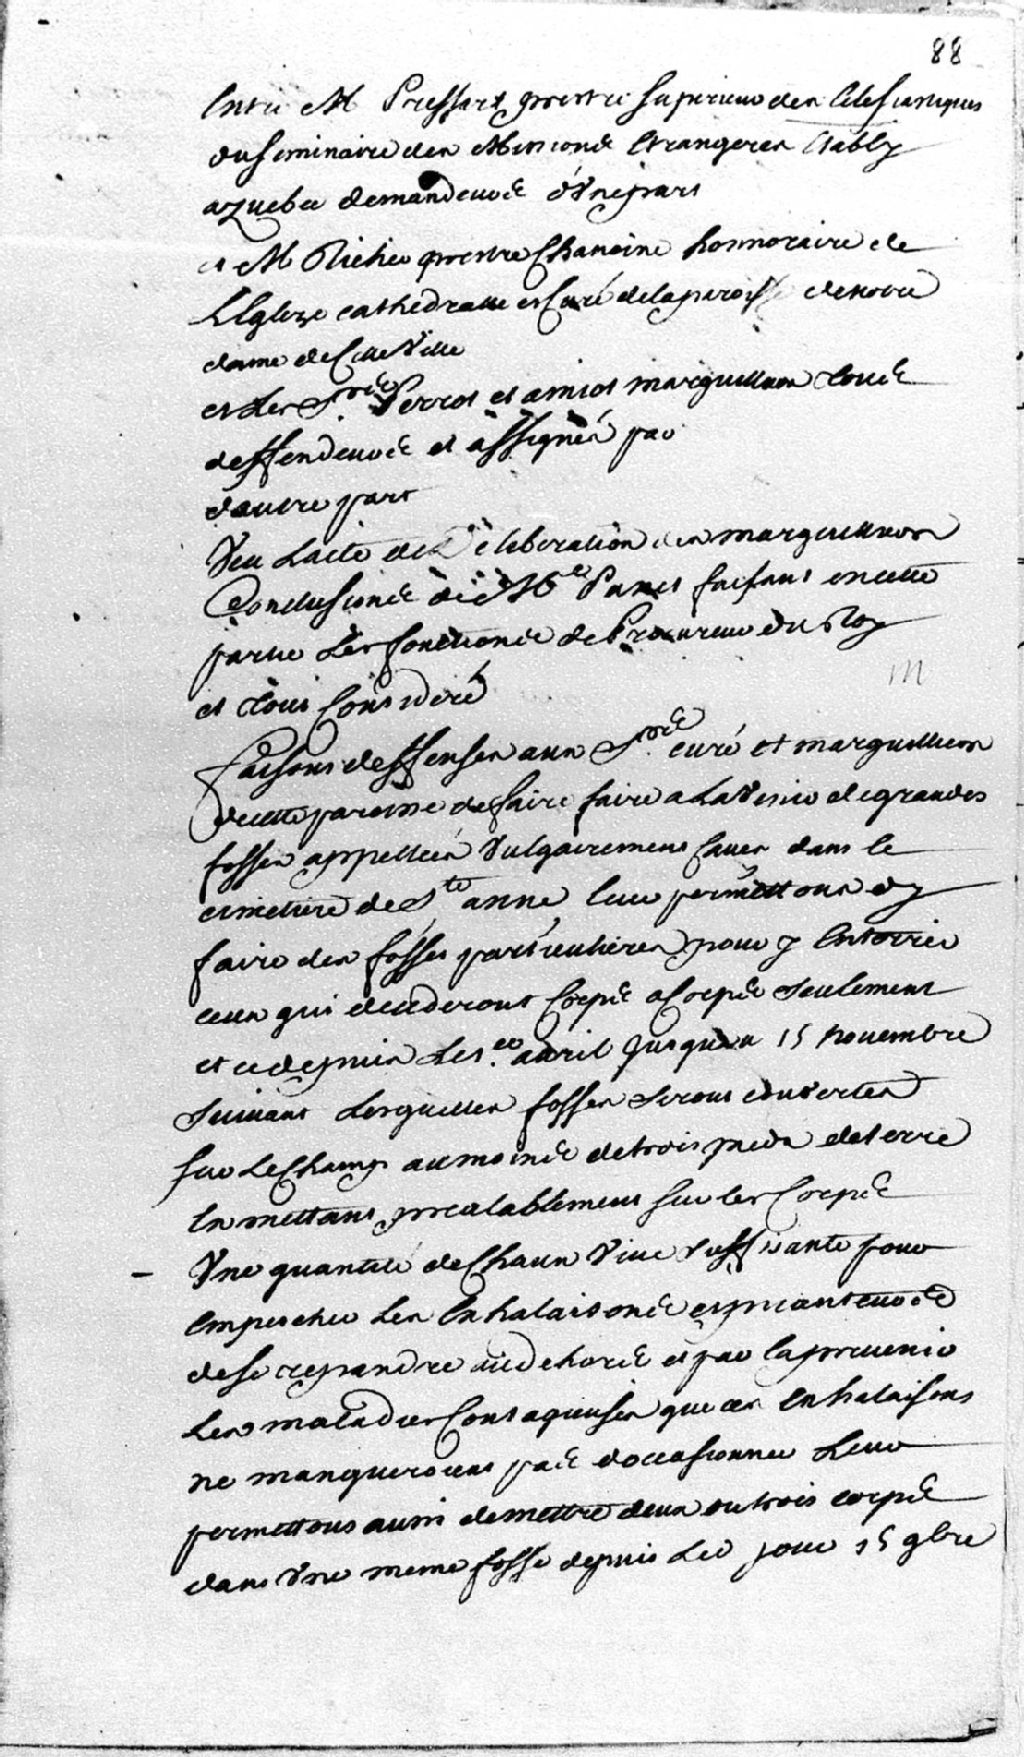 88
Entre M Pressart prestre superieur des Eclesiastiques
du seminaire des Missions Etrangeres Etably
a quebec demandeurs d'Une part
et M Récher prestre Chanoine honnoraire de
L'Eglize cathedralle et Curé de la paroisse de notre
dame de Cette Ville
et Les Srs Perrot et amiot marguilliers tous
deffendeurs et assignés par
dautre part
Veu Lacte de deliberation des marguilliers
Conclusions de Me Panet faisant en cette
partie Les fonctions de Procureur du Roy
et tout Consideré
m
Faisons deffenses aux Srs curé et marguilliers
de cette paroisse de faire faire a Lavenir de grandes
fosses appellées Vulgairement Caves dans le
cimetiere de Ste anne leur permettons dy
faire des fosses particulieres pour y Enterrer
ceux qui decederont Corps a Corps seulement
et ce depuis Le 1.er avril Jusquau 15 novembre
suivant Lesquelles fosses seront couvertes
sur Le Champ au moins de trois pieds de terre
En mettant prealablement sur les Corps
Une quantité de Chaux Vive suffisante pour
Empescher Les Exhalaisons et puanteurs
de se repandre au dehors et par la prevenir
Les maladies Contagieuses que ces Exhalaisons
ne manqueroient pas doccasionner Leur
permettons aussi de mettre deux ou trois corps
dans Une meme fosse depuis Led jour 15 9bre